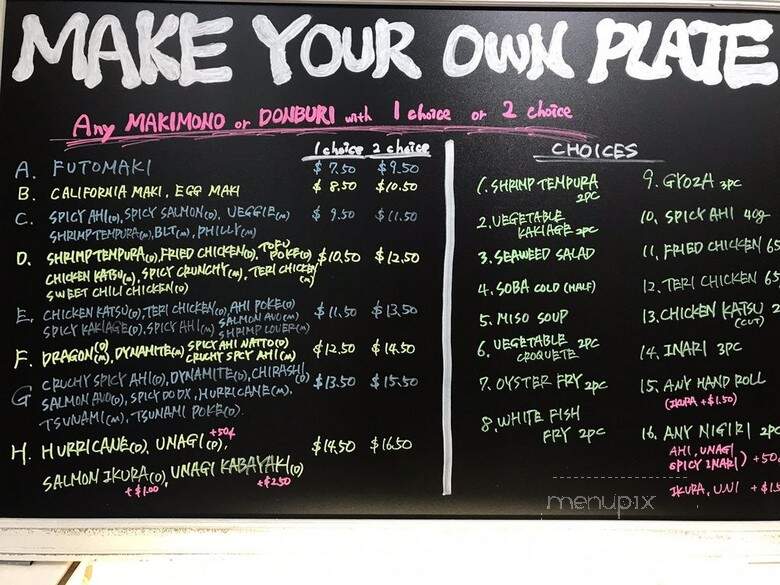 MAKE YOUR OWN PLATE
Any MAKIMONO or DONBURI with 1 choice or 2 choice
1 choice 2 choice
A. FUTOMAKI $7.50 $9.50
B. CALIFORNIA MAKI, EGG MAKI $8.50 $10.50
C. SPICY AHI(D), SPICY SALMON(D), VEGGIE(M) $9.50 $11.50
SHRIMP TEMPURA(M), BLT(M), PHILLY(M)
D. SHRIMP TEMPURA(D), FRIED CHICKEN(D), TOFU POKE(D) $10.50 $12.50
CHICKEN KATSU(M), SPICY CRUNCHY(M), TERI CHICKEN(M)
SWEET CHILI CHICKEN(D)
E. CHICKEN KATSU(D), TERI CHICKEN(D), AHI POKE(D) $11.50 $13.50
SPICY KAKIAGE(D), SPICY AHI(M) SALMON AVO(M) SHRIMP LOVER(M)
F. DRAGON(D)(M), DYNAMITE(M) SPICY AHI NATTO(D) CRUCHY SPCY AHI(M) $12.50 $14.50
G CRUCHY SPICY AHI(D), DYNAMITE(D), CHIRASHI, $13.50 $15.50
SALMON AVO(D), SPICY DO DX, HURRICANE(M),
TSUNAMI(M), TSUNAMI POKE(D).
H. HURRICANE(D), UNAGI(D), +50¢ $14.50 $16.50
SALMON IKURA(D), UNAGI KABAYAKI(D)
+$1.00 +$2.50
CHOICES
1. SHRIMP TEMPURA 2PC
2. VEGETABLE KAKIAGE 2PC
3. SEAWEED SALAD
4. SOBA COLD (HALF)
5. MISO SOUP
6. VEGETABLE 2PC CROQUETE
7. OYSTER FRY 2PC
8. WHITE FISH FRY 2PC
9. GYOZA 3PC
10. SPICY AHI 40g
11. FRIED CHICKEN 65
12. TERI CHICKEN 65
13. CHICKEN KATSU 2
(CUT)
14. INARI 3PC
15. ANY HAND ROLL
(IKURA +$1.50)
16. ANY NIGIRI 2PC
AHI, UNAGI
SPICY INARI) +50
IKURA, UNI +$1.5
menupix